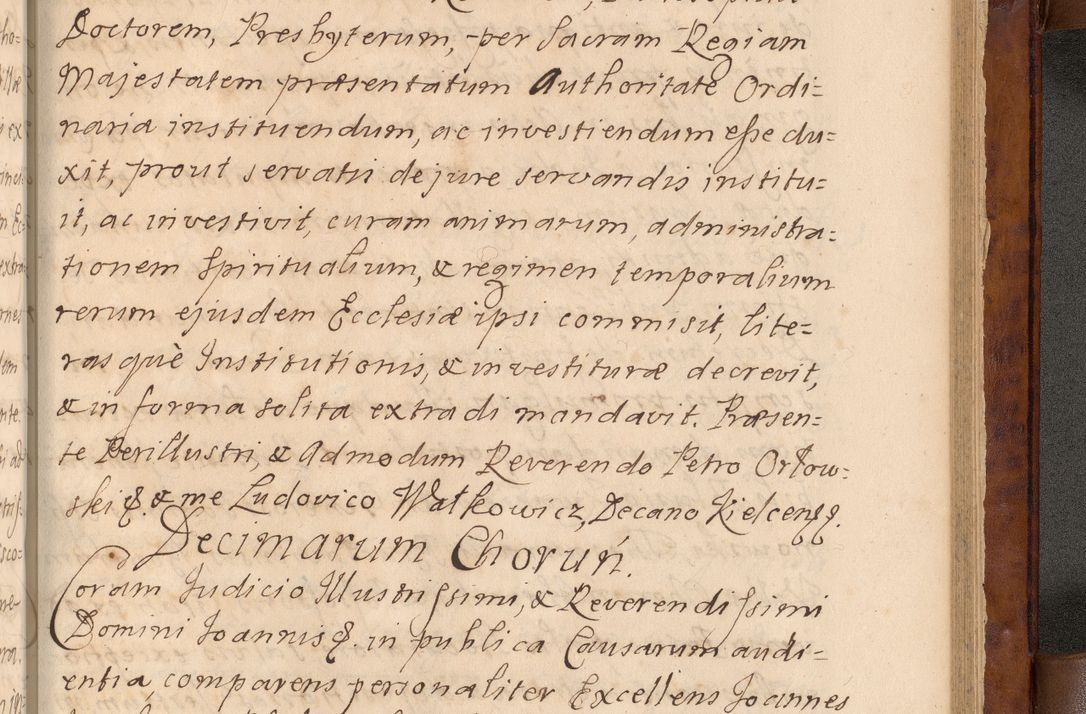 Doctorem, Presbyterum, per Sacram Regiam
Majestatem præsentatum Authoritate Ordi=
naria instituendum, ac investiendum esse du=
xit, prout servatis de jure servandis institu=
it, ac investivit, curam animarum, administra=
tionem Spiritualium, & regimen temporalium
rerum ejusdem Ecclesiæ ipsi commisit, lite=
rasquè Institutionis, & investituræ decrevit,
& in forma solita extradi mandavit. Præsen=
te Perillustri, & Admodum Reverendo Petro Orłow=
ski &. & me Ludovico Wałkowicz, Decano Kielcen &&.
Decimarum Choruń.
Coram Judicio Illustrissimi, & Reverendissimi
Domini Joannis &. in publica Causarum audi=
entia, comparens personaliter Excellens Joannes